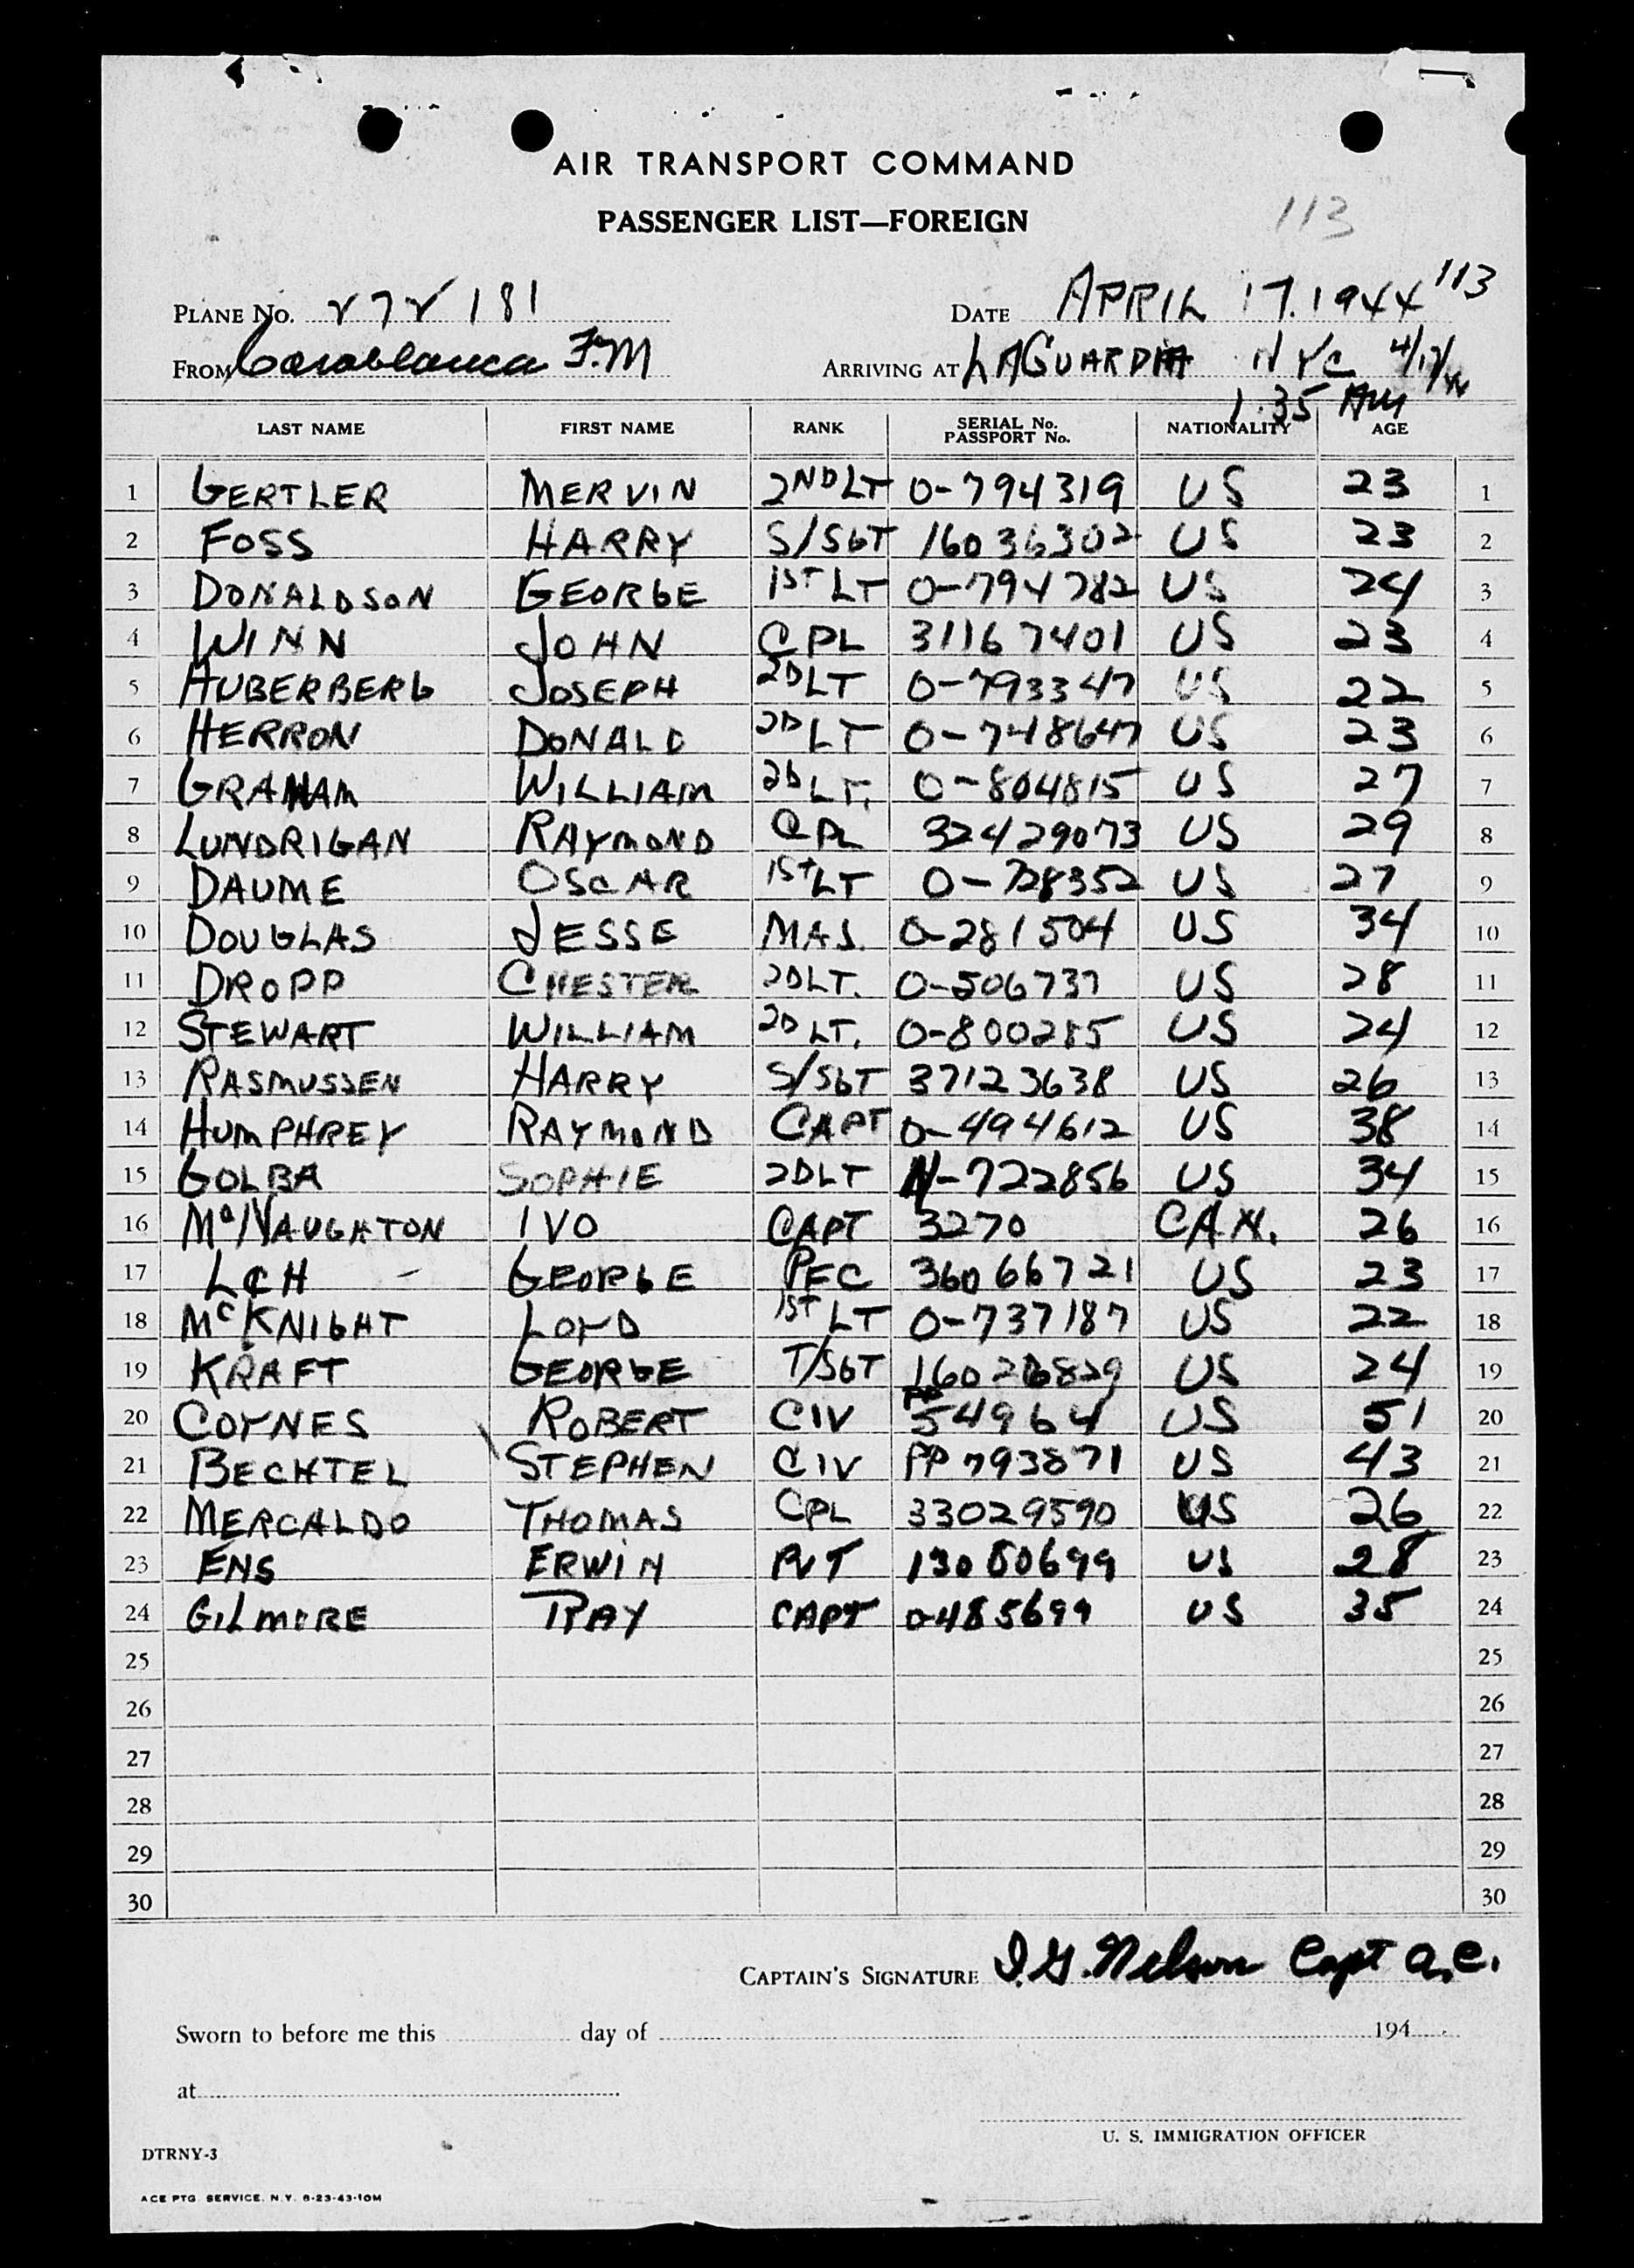 AIR TRANSPORT COMMAND
PASSENGER LIST—FOREIGN
113
PLANE No. 272 181 DATE APRIL 17. 1944 113
FROM Casablanca F.M ARRIVING AT LAGUARDIA NYC 4/17/44
1:35 AM
LAST NAME FIRST NAME RANK SERIAL No. PASSPORT No. NATIONALITY AGE
1 GERTLER MERVIN 2ND LT 0-794319 US 23 1
2 FOSS HARRY S/SGT 16036302 US 23 2
3 DONALDSON GEORGE 1ST LT 0-794782 US 24 3
4 WINN JOHN CPL 31167401 US 23 4
5 HUBERBERG JOSEPH 2D LT 0-793347 US 22 5
6 HERRON DONALD 2D LT 0-748647 US 23 6
7 GRAHAM WILLIAM 2D LT. 0-804815 US 27 7
8 LUNDRIGAN RAYMOND CPL 32429073 US 29 8
9 DAUME OSCAR 1ST LT 0-728352 US 27 9
10 DOUGLAS JESSE MAJ. 0-281504 US 34 10
11 DROPP CHESTER 2D LT. 0-506737 US 28 11
12 STEWART WILLIAM 2D LT. 0-800285 US 24 12
13 RASMUSSEN HARRY S/SGT 37123638 US 26 13
14 HUMPHREY RAYMOND CAPT 0-494612 US 38 14
15 GOLBA SOPHIE 2D LT N-722856 US 34 15
16 McNAUGHTON IVO CAPT 3270 CAN. 26 16
17 LCH - GEORGE PFC 36066721 US 23 17
18 McKNIGHT LOYD 1ST LT 0-737187 US 22 18
19 KRAFT GEORGE T/SGT 16026829 US 24 19
20 COYNES ROBERT CIV PP 54964 US 51 20
21 BECHTEL STEPHEN CIV PP 793871 US 43 21
22 MERCALDO THOMAS CPL 33029590 US 26 22
23 ENS ERWIN PVT 13080699 US 28 23
24 GILMORE RAY CAPT 0-485699 US 35 24
25 25
26 26
27 27
28 28
29 29
30 30
CAPTAIN'S SIGNATURE I.G. Nelson Capt A.C.
Sworn to before me this day of 194
at
U. S. IMMIGRATION OFFICER
DTRNY-3
ACE PTG. SERVICE. N.Y. 8-23-43-10M